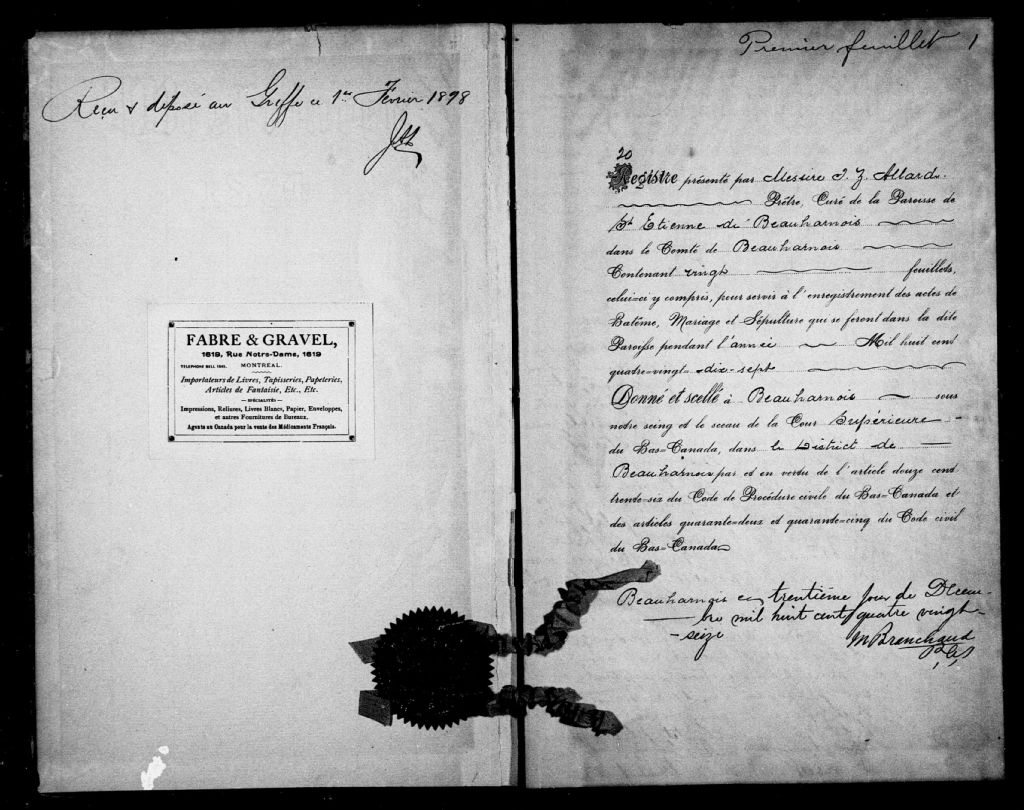 Reçu & déposé au Greffe ce 1er Février 1898
FABRE & GRAVEL,
1619, Rue Notre-Dame, 1619
TELEPHONE BELL MONTRÉAL.
Importateurs de Livres, Tapisseries, Papeteries,
Articles de Fantaisie, Etc., Etc.
— SPÉCIALITÉS —
Impressions, Reliures, Livres Blancs, Papier, Enveloppes,
et autres Fournitures de Bureaux.
Agents au Canada pour la vente des Médicaments Français.
Premier feuillet 1
20
Registre présenté par Messire J. Z. Allard
Prêtre, Curé de la Paroisse de
St Etienne de Beauharnois
dans le Comté de Beauharnois
Contenant vingt feuillets,
celui=ci y compris, pour servir à l'enregistrement des actes de
Batême, Mariage et Sépulture qui se feront dans la dite
Paroisse pendant l'année Mil huit cent
quatre=vingt-dix-sept
Donné et scellé à Beauharnois sous
notre seing et le sceau de la Cour Supérieure
du Bas=Canada, dans le District de
Beauharnois par et en vertu de l'article douze cent
trente=six du Code de Procédure civile du Bas=Canada et
des articles quarante=deux et quarante=cinq du Code civil
du Bas=Canada
Beauharnois ce trentième jour de Décem-
bre mil huit cent quatre vingt-
-seize
M Branchaud